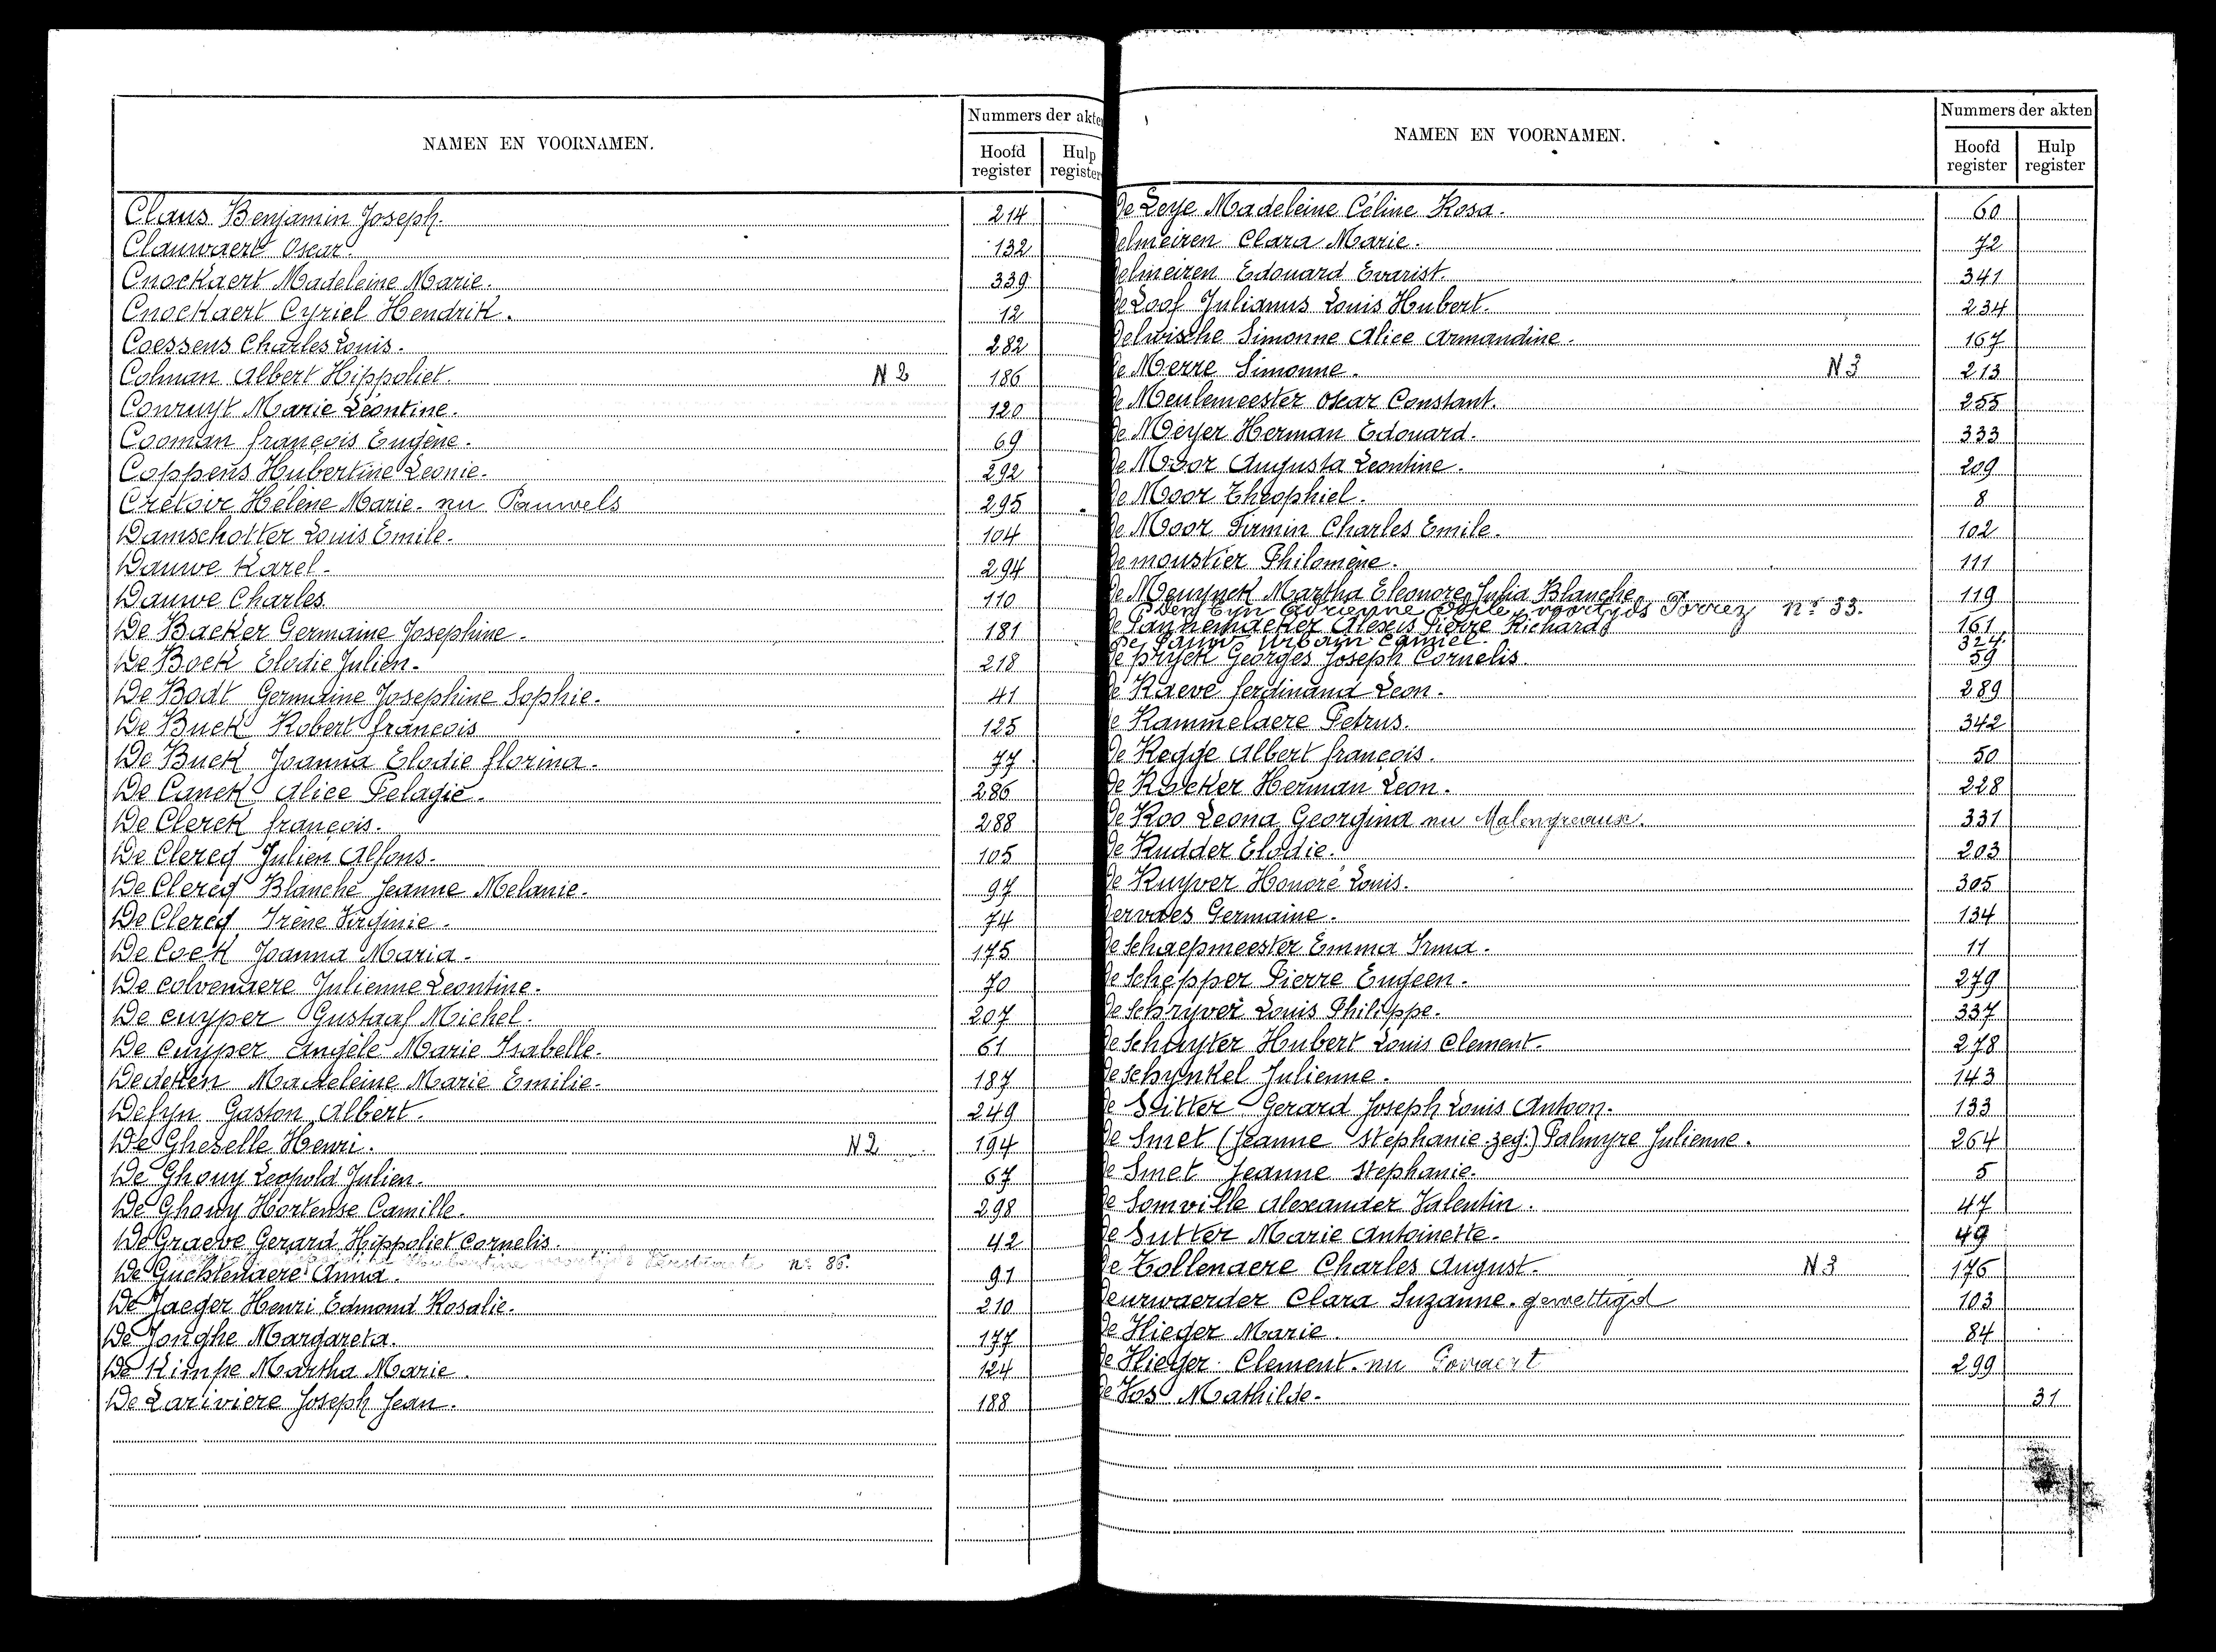 NAMEN EN VOORNAMEN.
Nummers der akten
Hoofd register
Hulp register
Claus Benjamin Joseph. 214
Clauwaert Oscar. 132
Cnockaert Madeleine Marie. 339
Cnockaert Cyriel Hendrik. 12
Coessens Charles Louis. 282
Colman Albert Hippoliet. N 2 186
Conruyt Marie Léontine. 120
Cooman françois Eugène. 69
Coppens Hubertine Leonie. 292
Crétoir Hélène Marie. nu Pauwels 295
Damschotter Louis Emile. 104
Dauwe Karel. 294
Dauwe Charles. 110
De Backer Germaine Josephine. 181
De Bock Elodie Julien. 218
De Bodt Germaine Josephine Sophie. 41
De Buck Robert françois 125
De Buck Joanna Elodie florina. 77
De Canck Alice Pelagie. 286
De Clerck françois. 288
De Clercq Julien Alfons. 105
De Clercq Blanche Jeanne Melanie. 97
De Clercq Irène Virginie. 74
De Cock Joanna Maria. 175
De colvenaere Julienne Leontine. 70
De cuyper Gustaaf Michel. 207
De cuyper Angèle Marie Isabelle. 61
Dedeken Madeleine Marie Emilie. 187
Defyn Gaston Albert. 249
De Gheselle Henri. N 2 194
De Ghouy Leopold Julien. 67
De Ghouy Hortense Camille. 298
De Graeve Gerard Hippoliet Cornelis. 42
n: 86.
De Guchtenaere Anna. 91
De Jaeger Henri Edmond Rosalie. 210
De Jonghe Margareta. 177
De Kimpe Martha Marie. 124
De Lariviere Joseph Jean. 188
NAMEN EN VOORNAMEN.
Nummers der akten
Hoofd register
Hulp register
De Leye Madeleine Céline Rosa. 60
Delmeiren Clara Marie. 72
Delmeiren Edouard Evarist. 341
De Loof Julianus Louis Hubert. 234
Delwische Simonne Alice Armandine. 167
De Merre Simonne. N 3 213
De Meulemeester Oscar Constant. 255
De Meyer Herman Edouard. 333
De Moor Augusta Leontine. 209
De Moor Theophiel. 8
De Moor Firmin Charles Emile. 102
Demoustier Philomène. 111
De Meuynck Martha Eleonore Julia Blanche 119
Den Eyn Adrienne Odile, voortijds Porrez n: 33.
De Pannemaeker Alexis Pierre Richard 161
De Pauw Urbain Camiel. 324
De pryck Georges Joseph Cornelis. 59
De Raeve ferdinand Leon. 289
De Rammelaere Petrus. 342
De Regge Albert françois. 50
De Rocker Herman Leon. 228
De Roo Leona Georgina nu Malengreaux. 331
De Rudder Elodie. 203
De Ruyver Honoré Louis. 305
Dervaes Germaine. 134
De Schaepmeester Emma Irma. 11
De Schepper Pierre Eugeen. 279
De Schryver Louis Philippe. 337
De Schuyter Hubert Louis Clement. 278
De Schynkel Julienne. 143
De Sitter Gerard Joseph Louis Antoon. 133
De Smet (Jeanne Stephanie zeg.) Palmyre Julienne. 264
De Smet Jeanne Stephanie. 5
De Somville Alexander Valentin. 47
De Sutter Marie Antoinette. 49
De Tollenaere Charles August. N 3 176
Deurwaerder Clara Suzanne. gewettigd 103
De Vlieger Marie. 84
De Vlieger Clement. nu Govaert 299
De Vos Mathilde. 31